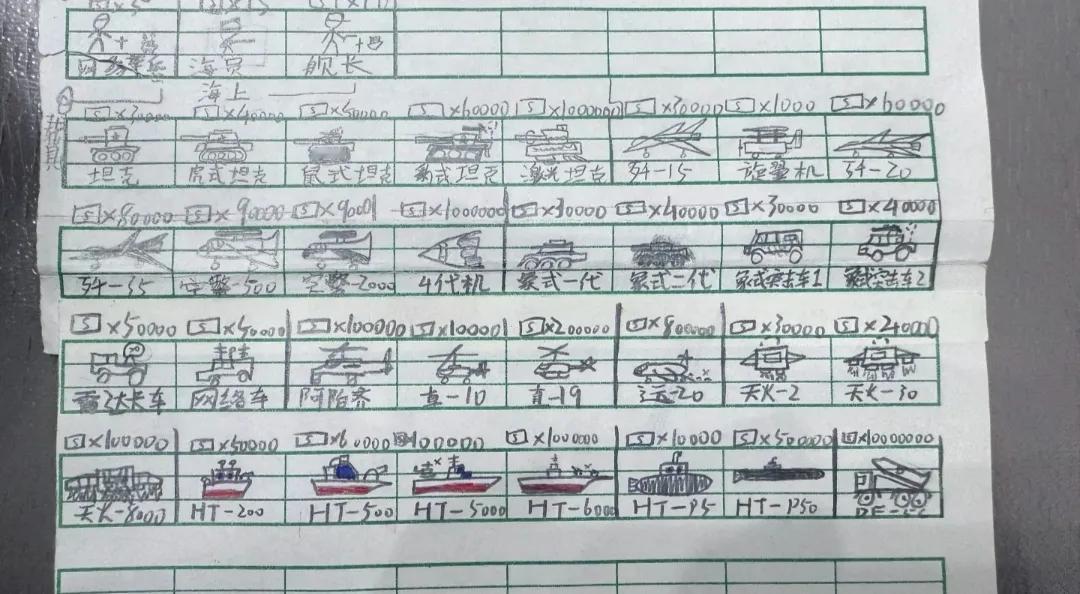 海员 舰长
海上
$×30000 $×40000 $×50000 $×60000 $×1000000 $×30000 $×1000 $×60000
坦克 虎式坦克 鼠式坦克 坦克 激光坦克 歼-15 旋翼机 歼-20
$×80000 $×90000 $×9000 $×1000000 $×30000 $×40000 $×30000 $×40000
歼-35 空警-500 空警-2000 4代机 象式一代 象式二代 象式突击车1 象式突击车2
$×50000 $×50000 $×100000 $×10000 $×200000 $×800000 $×30000 $×240000
雷达卡车 网络车 阿帕奇 直-10 直-19 运-20 天火-2 天火-30
$×100000 $×50000 $×60000 $×100000 $×100000 $×10000 $×500000 $×10000000
天火-8000 HT-200 HT-500 HT-5000 HT-6000 HT-P5 HT-P50